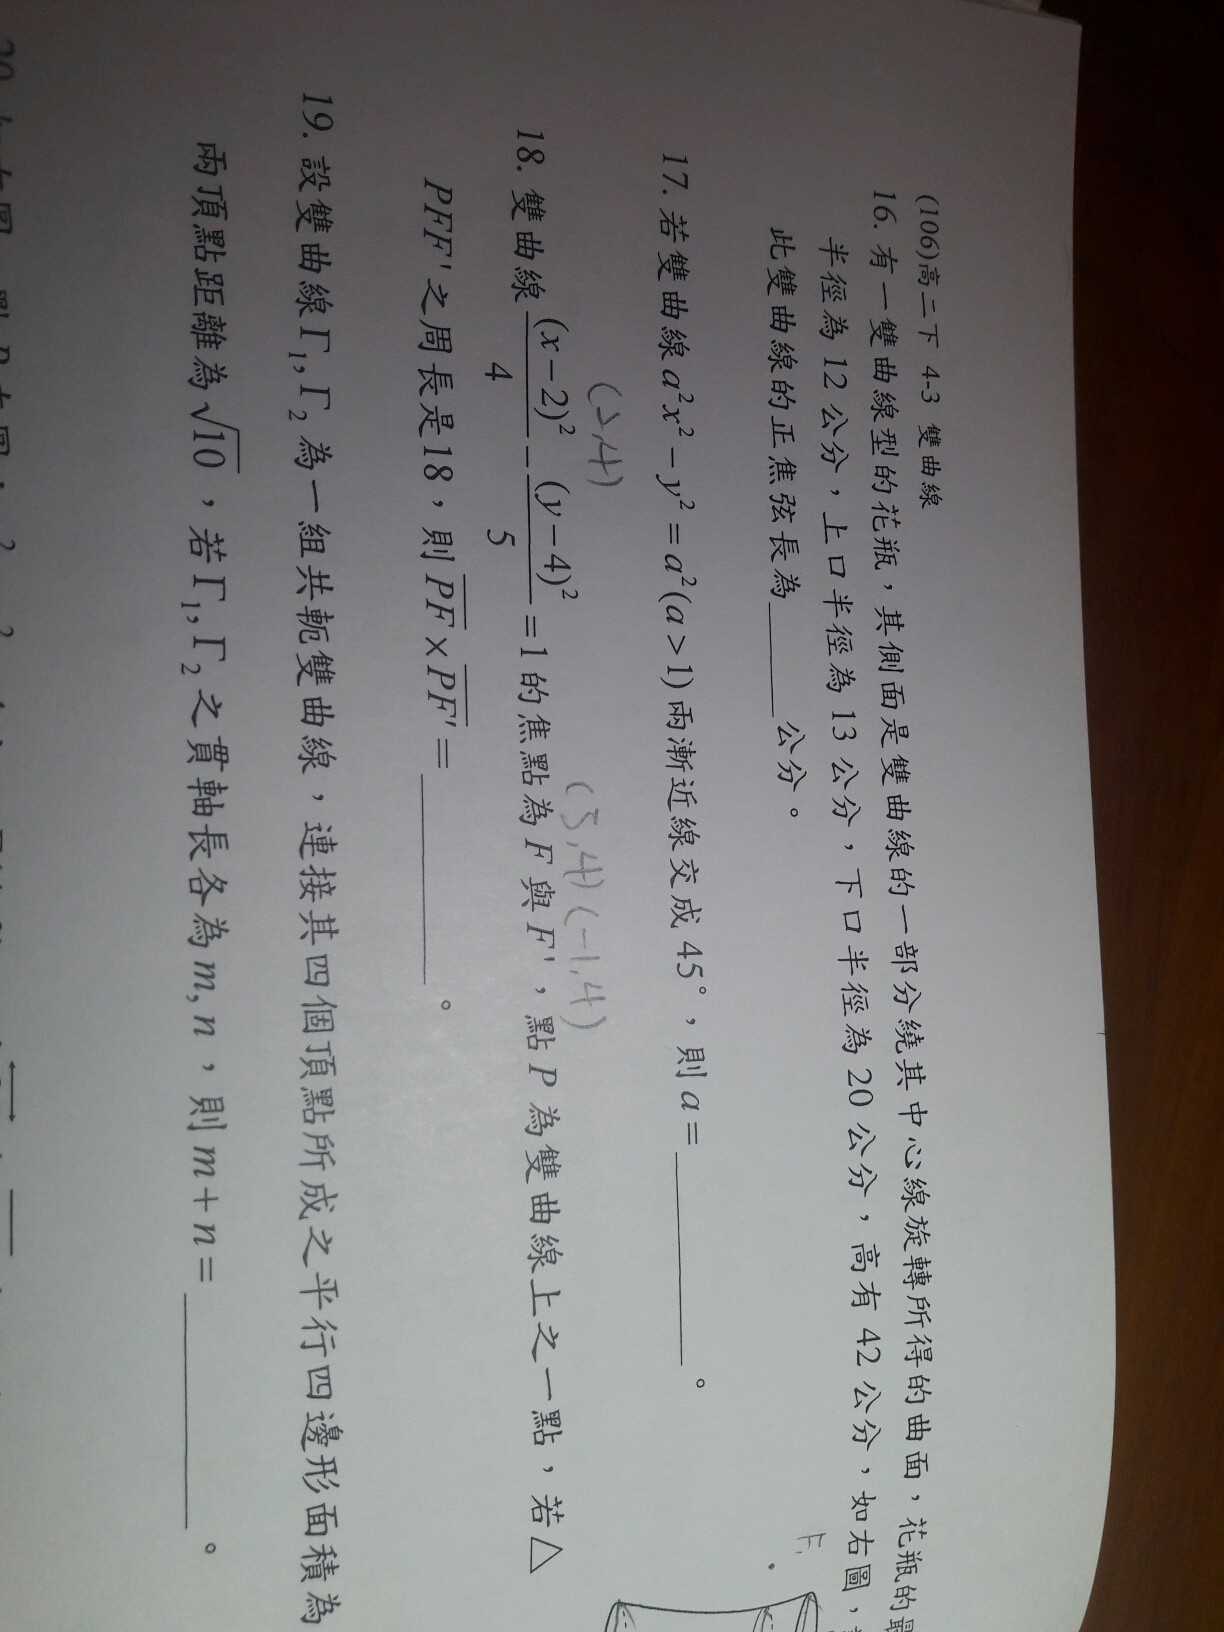 (106)高二下 4-3 雙曲線
16. 有一雙曲線型的花瓶，其側面是雙曲線的一部分繞其中心線旋轉所得的曲面，花瓶的
半徑為 12 公分，上口半徑為 13 公分，下口半徑為 20 公分，高有 42 公分，如右圖，
此雙曲線的正焦弦長為______公分。
17. 若雙曲線 a²x² − y² = a² (a > 1) 兩漸近線交成 45°，則 a = ______。
(2,4)
(5,4) (-1,4)
18. 雙曲線 (x−2)²/4 − (y−4)²/5 = 1 的焦點為 F 與 F'，點 P 為雙曲線上之一點，若△
PFF' 之周長是18，則 PF × PF' = ______。
19. 設雙曲線 Γ₁, Γ₂ 為一組共軛雙曲線，連接其四個頂點所成之平行四邊形面積為
兩頂點距離為 √10，若 Γ₁, Γ₂ 之貫軸長各為 m, n，則 m + n = ______。